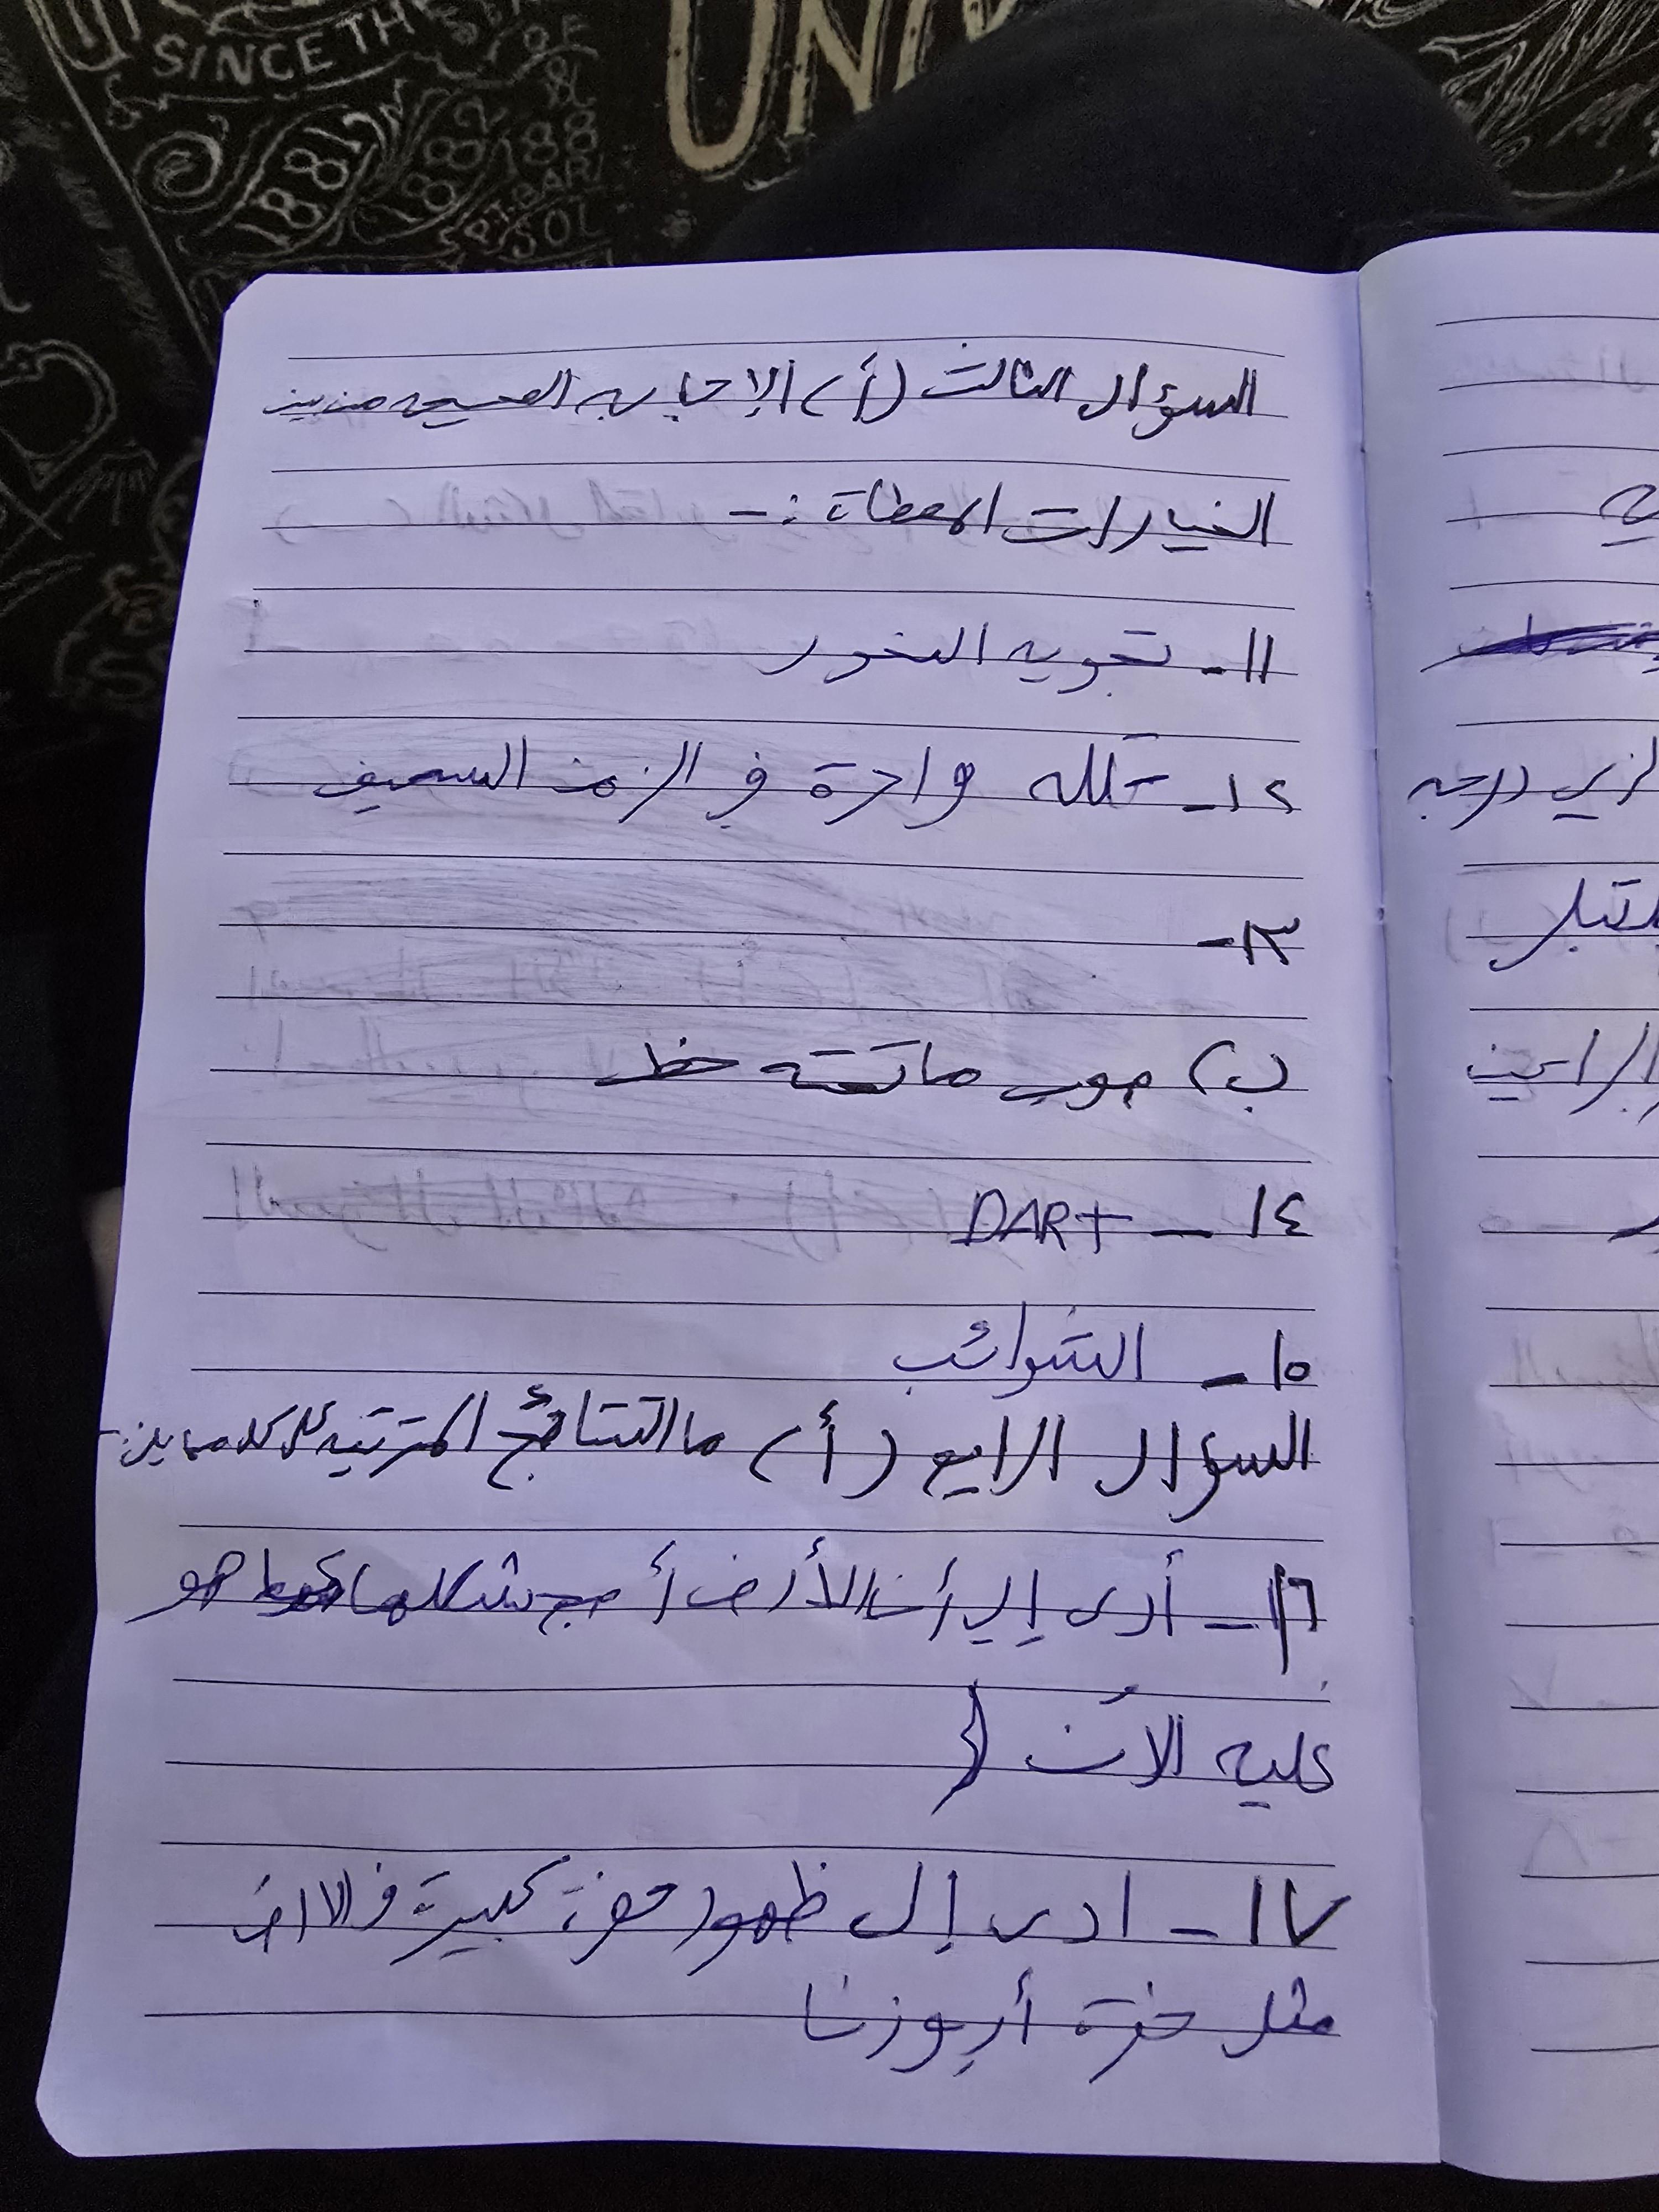 SINCE THE
UNI
1881
188
SOL
السؤال الثالث (أ) الإجابه الصحيحه من بين
الخيارات المعطاة :-
١١- تجويه الصخور
١٢- كتله واحدة في الزمن السحيق
١٣-
ب) صوب ماتحته خط
١٤ - DART
١٥ - الشوائب
السؤال الرابع (أ) ما النتائج المترتبه على كلا مما يلي:-
١٦ - أدى إلى أن الأرض أصبح شكلها كما هو
عليه الآن
١٧ - ادى إلى ظهور حفرة كبيرة في الارض
مثل حفرة أريزونا